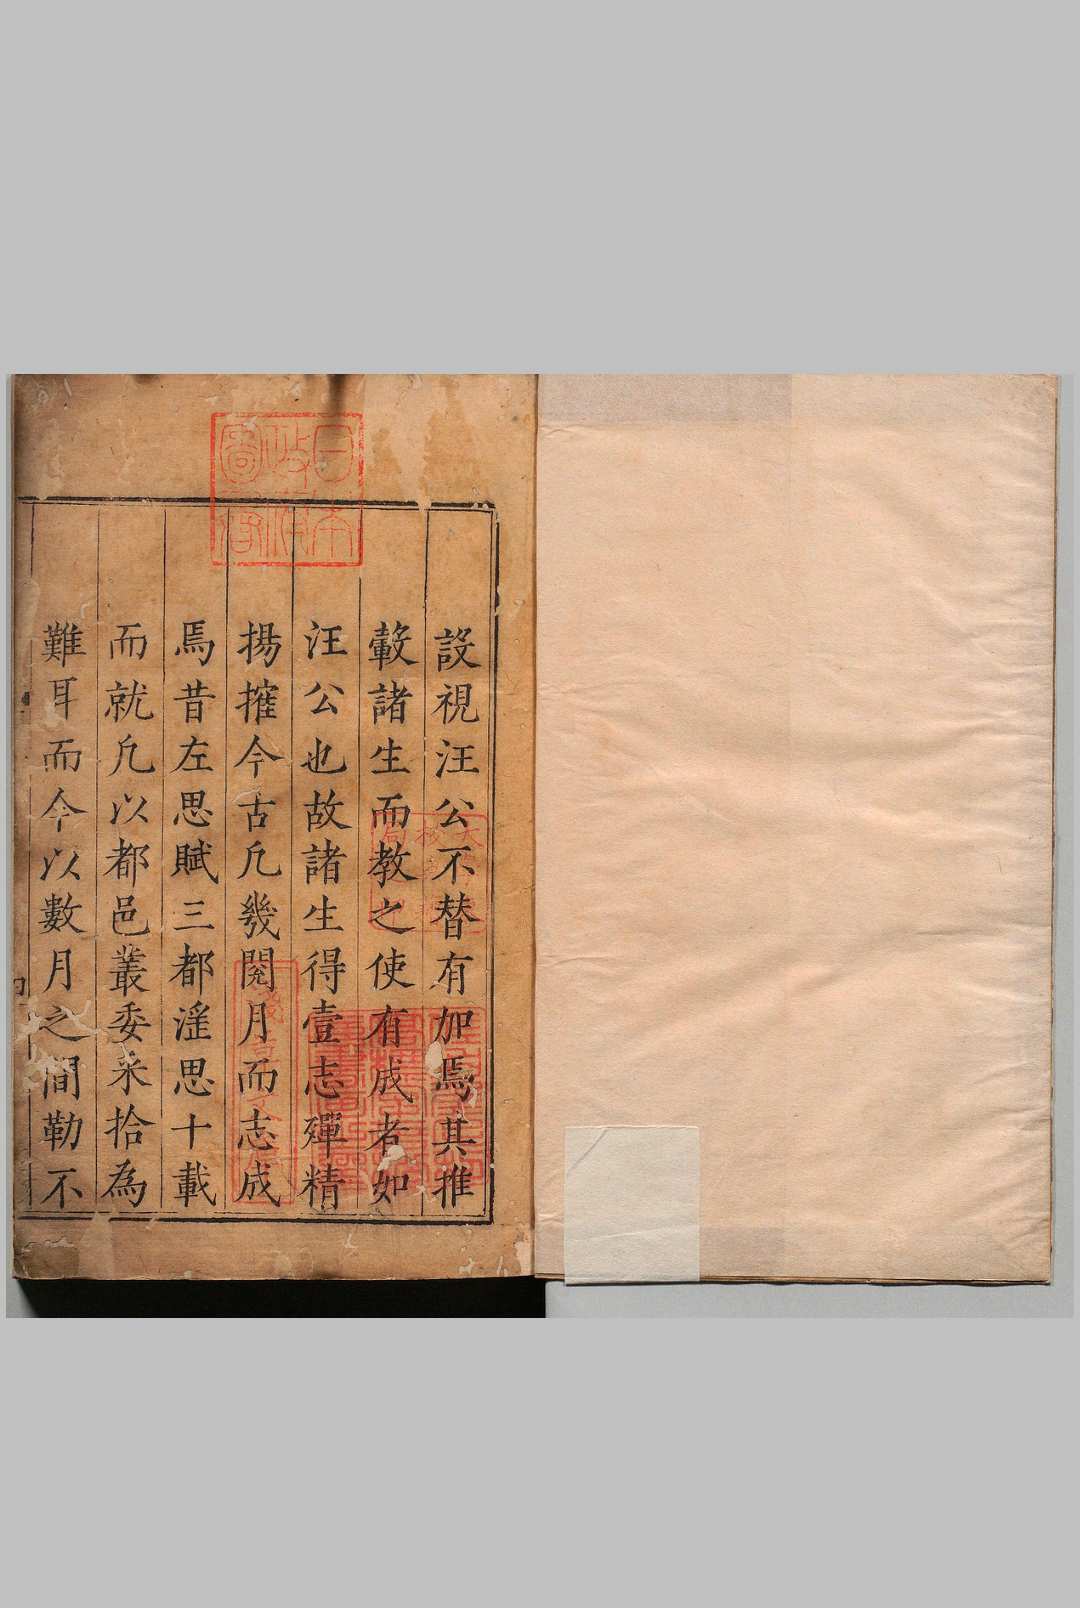 設視汪公不替有加焉其推
轂諸生而教之使有成者如
汪公也故諸生得壹志殫精
揚搉今古凡幾閱月而志成
焉昔左思賦三都淫思十載
而就凡以都邑叢委采拾為
難耳而今以數月之間勒不
日本政府圖書